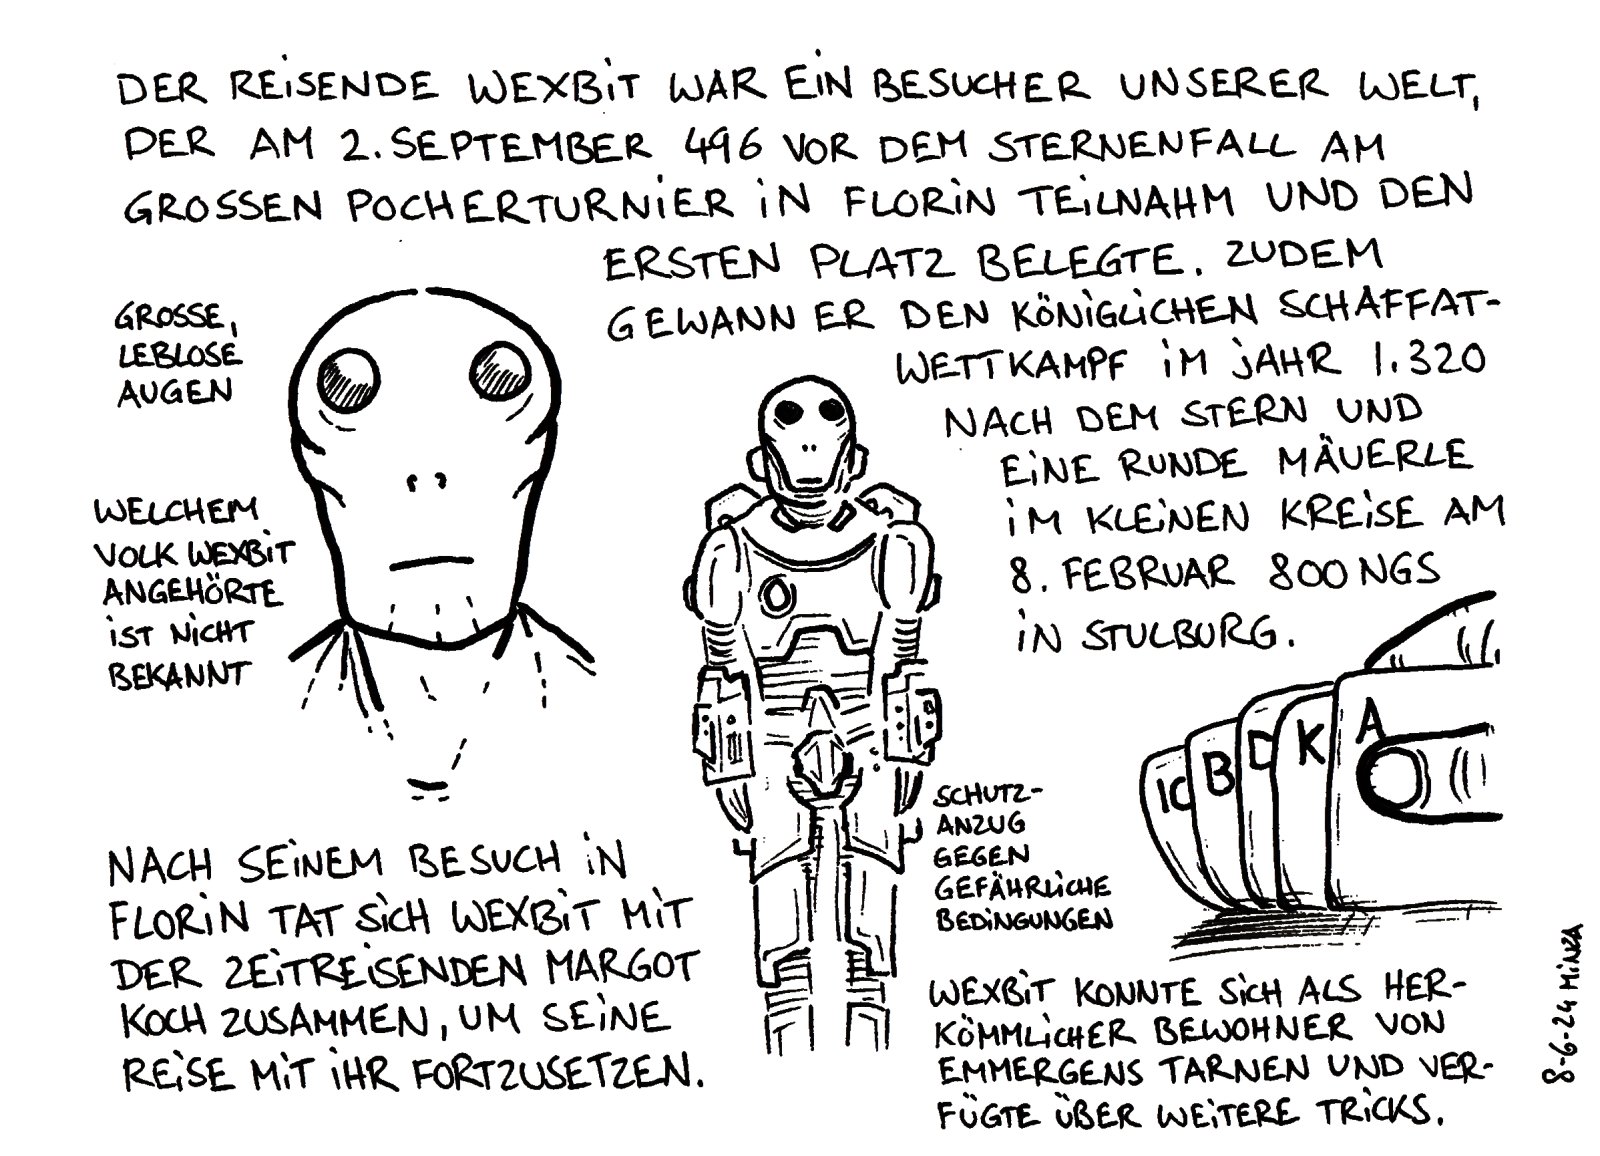 DER REISENDE WEXBIT WAR EIN BESUCHER UNSERER WELT,
DER AM 2. SEPTEMBER 496 VOR DEM STERNENFALL AM
GROSSEN POCHERTURNIER IN FLORIN TEILNAHM UND DEN
ERSTEN PLATZ BELEGTE. ZUDEM
GEWANN ER DEN KÖNIGLICHEN SCHAFFAT-
WETTKAMPF IM JAHR 1.320
NACH DEM STERN UND
EINE RUNDE MÄUERLE
IM KLEINEN KREISE AM
8. FEBRUAR 800 NGS
IN STULBURG.
GROSSE,
LEBLOSE
AUGEN
WELCHEM
VOLK WEXBIT
ANGEHÖRTE
IST NICHT
BEKANNT
10 B D K A
SCHUTZ-
ANZUG
GEGEN
GEFÄHRLICHE
BEDINGUNGEN
NACH SEINEM BESUCH IN
FLORIN TAT SICH WEXBIT MIT
DER ZEITREISENDEN MARGOT
KOCH ZUSAMMEN, UM SEINE
REISE MIT IHR FORTZUSETZEN.
WEXBIT KONNTE SICH ALS HER-
KÖMMLICHER BEWOHNER VON
EMMERGENS TARNEN UND VER-
FÜGTE ÜBER WEITERE TRICKS.
8-6-24 MINZA